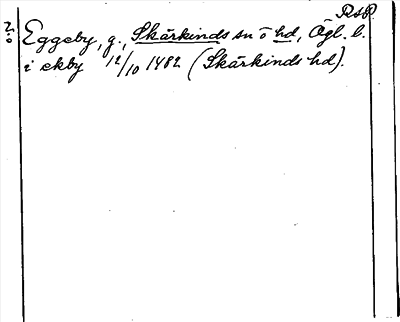 Rsp.
Eggeby, g., Skärkinds sn o hd, Ögl. l.
i ekby 12/10 1482 (Skärkinds hd).